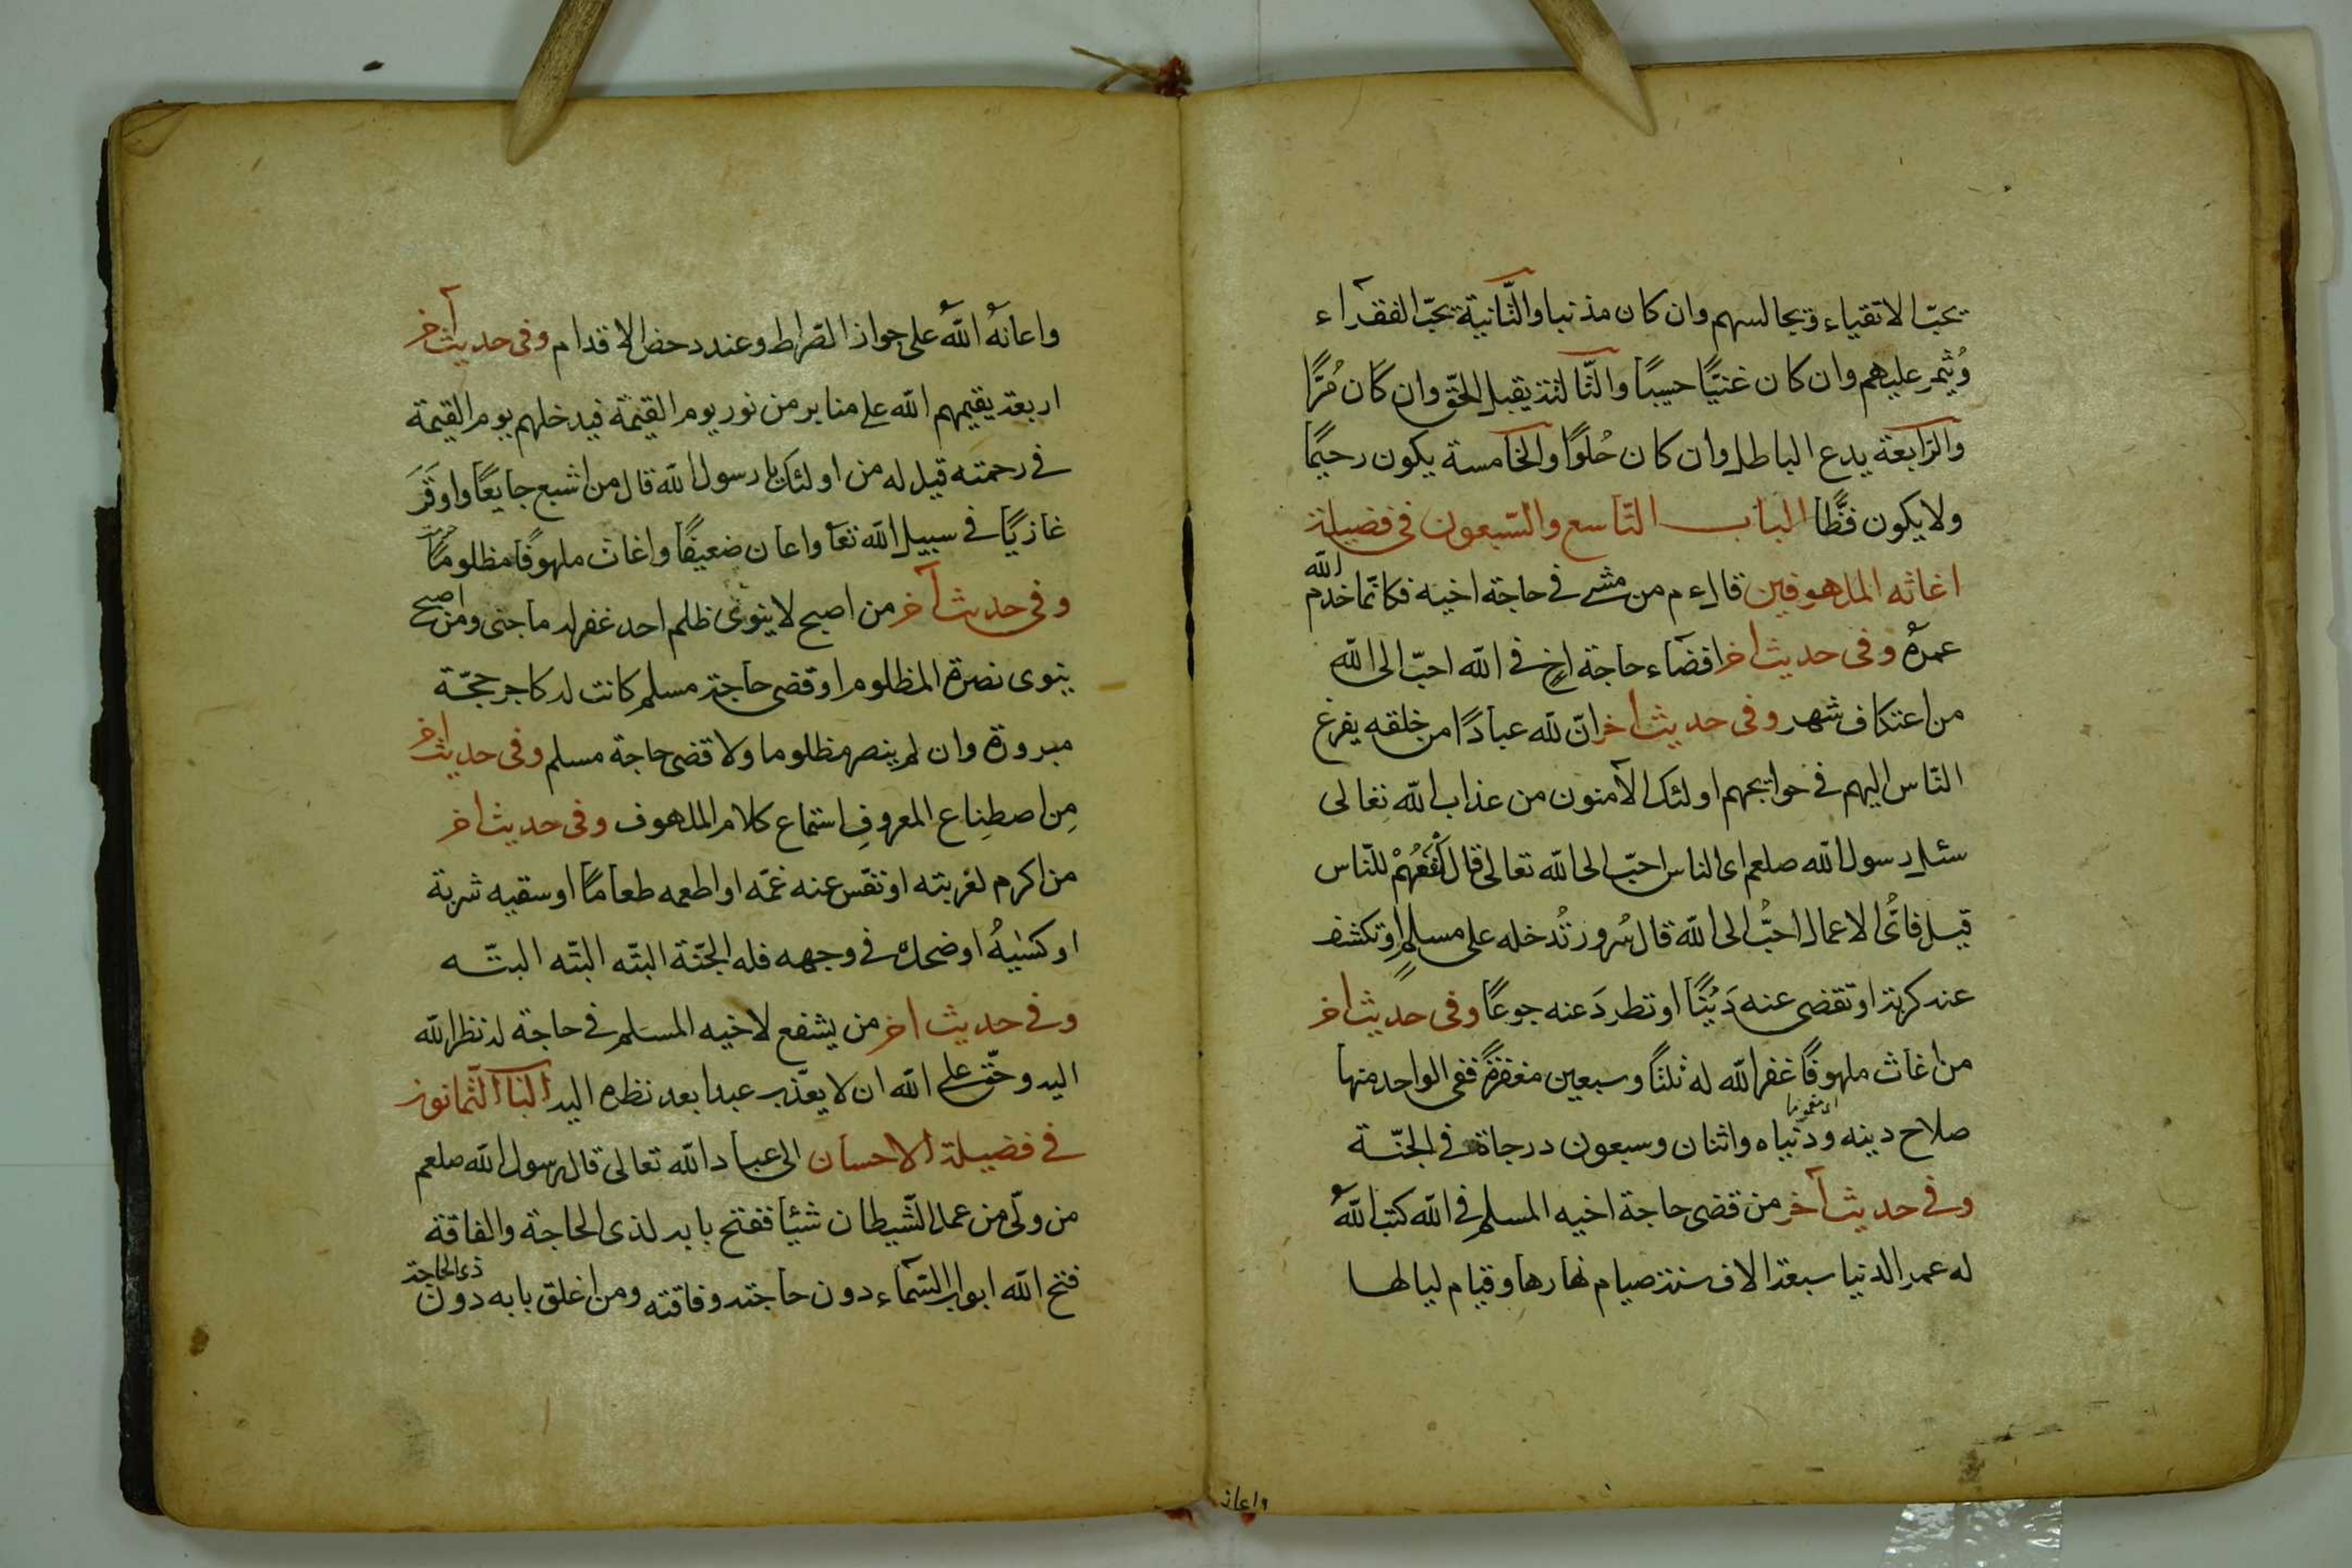 يحبّ الاتقياء ويجالسهم وان كان مذنبا والثّانية يحبّ الفقراء
ويُثمر عليهم وان كان غنيًّا حسيبًا والثّالثة يقبل الحقّ وان كان مُرًّا
والرّابعة يدع الباطل وان كان حُلوًا والخامسة يكون رحيمًا
ولا يكون فظًّا الباب التّاسع والسّبعون فى فضيلة
اغاثه الملهوفين قال ءم من مشى فى حاجة اخيه فكانّما خدم الله
عمره وفى حديث اخر اقضاء حاجة اخٍ فى الله احبّ الى الله
من اعتكاف شهر وفى حديث اخر انّ لله عبادًا من خلقه يفزع
النّاس اليهم فى حوايجهم اولئك الآمنون من عذاب الله تعالى
سئل رسول الله صلعم اى الناس احبّ الى الله تعالى قال انفعُهمْ للنّاس
قيل فاىُّ الاعمال احبُّ الى الله قال سُرور تُدخله على مسلمٍ او تكشف
عنه كربة او تقضى عنه دَيْنًا او تطردَ عنه جوعًا وفى حديث اخر
من اغاث ملهوفًا غفر الله له ثلثًا وسبعين مغفرةً ففى الواحد منها
صلاح دينه ودنياه واثنان وسبعون درجاة فى الجنّة
وفى حديث آخر من قضى حاجة اخيه المسلم فى الله كتب اللهُ
له عمر الدنيا سبعة الاف سنة صيام نهارها وقيام ليالها
واعانه
واعانهُ اللهُ على جواز الصّراط وعند دحض الاقدام وفى حديث آخر
اربعة يقيمهم الله على منابر من نور يوم القيٰمة فيدخلهم يوم القيمة
فى رحمته قيل له من اولئك يا رسول الله قال من اشبع جايعًا واوقَرَ
غازيًا فى سبيل الله تعا واعان ضعيفًا واغاث ملهوفًا مظلومًا
وفى حديث آخر من اصبح لا ينوى ظلم احد غفر له ما جنى ومن اصبح
ينوى نصرة المظلوم او قضى حاجة مسلم كانت له كاجر حجّة
مبرورة وان لم ينصر مظلوما ولا قضى حاجة مسلم وفى حديث اخر
مِن اصطِناع المعروفِ استماع كلام الملهوف وفى حديث اخر
من اكرم لغربته او نفّس عنه غمّه او اطعمه طعامًا او سقيه شربة
او كسٰيهُ او ضحك فى وجهه فله الجنّة البتّه البتّه البتّه
وفى حديث اخر من يشفع لاخيه المسلم فى حاجة له نظر الله
اليه وحقّ على الله ان لا يعذّب عبدا بعد نظره اليه البا الثّمانون
فى فضيلة الاحسان الى عباد الله تعالى قال رسول الله صلعم
من ولّى من عمل الشّيطان شيًا ففتح بابه لذى الحاجة والفاقة
فتح الله ابواب السّماء دون حاجته وفاقته ومن اغلق بابه دون ذى الحاجة